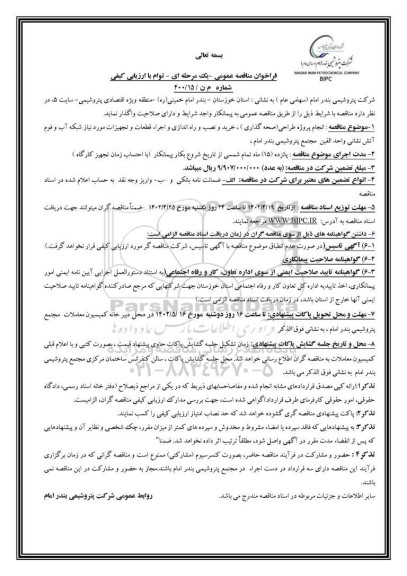 بسمه تعالی
شرکت پتروشیمی بندر امام
BANDAR IMAM PETROCHEMICAL COMPANY
BIPC
فراخوان مناقصه عمومی -یک مرحله ای - توام با ارزیابی کیفی
شماره م ن / ۴۰۰/۱۵
شرکت پتروشیمی بندر امام (سهامی عام ) به نشانی : استان خوزستان - بندر امام خمینی(ره) -منطقه ویژه اقتصادی پتروشیمی- سایت ۵، در
نظر دارد مناقصه با شرایط ذیل را از طریق مناقصه عمومی به پیمانکار واجد شرایط و دارای صلاحیت واگذار نماید.
۱-موضوع مناقصه : انجام پروژه طراحی(صحه گذاری ) ، خرید و نصب و راه اندازی و اجراء قطعات و تجهیزات مورد نیاز شبکه آب و فوم
آتش نشانی واحد الفین مجتمع پتروشیمی بندر امام .
۲- مدت اجرای موضوع مناقصه : پانزده (۱۵) ماه تمام شمسی از تاریخ شروع بکار پیمانکار (با احتساب زمان تجهیز کارگاه )
۳- مبلغ تضمین شرکت در مناقصه: (به عدد) ۹/۹۰۷/۰۰۰/۰۰۰ ریال میباشد.
۴- انواع تضمین های معتبر برای شرکت در مناقصه: الف- ضمانت نامه بانکی و -ب- واریز وجه نقد به حساب اعلام شده در اسناد
مناقصه
۵- مهلت توزیع اسناد مناقصه : ازتاریخ ۱۴۰۲/۴/۱۹ تا ساعت ۲۴ روز یکشنبه مورخ ۱۴۰۲/۴/۲۵ ضمناً مناقصه گران میتوانند جهت دریافت
اسناد مناقصه به آدرس: WWW.BIPC.IR مراجعه نمایند.
۶- داشتن گواهینامه های ذیل از سوی مناقصه گران در زمان دریافت اسناد مناقصه الزامی است:
۶-۱) آگهی تاسیس(در صورت عدم انطباق موضوع مناقصه با آگهی تاسیس، شرکت مناقصه گر مورد ارزیابی کیفی قرار نخواهد گرفت.)
۶-۲) گواهینامه صلاحیت پیمانکاری
۶-۳) گواهینامه تایید صلاحیت ایمنی از سوی اداره تعاون، کار و رفاه اجتماعی(به استناد دستورالعمل اجرایی آیین نامه ایمنی امور
پیمانکاری، اخذ تاییدیه اداره کل تعاون کار و رفاه اجتماعی استان خوزستان جهت شرکتهایی که مرجع صادرکننده گواهینامه تایید صلاحیت
ایمنی آنها خارج از استان باشد، در زمان دریافت اسناد مناقصه الزامی است.)
۷- مهلت و محل تحویل پاکات پیشنهادی: تا ساعت ۱۶ روز دوشنبه مورخ ۱۴۰۲/۵/۱۶ در محل دبیر خانه کمیسیون معاملات مجتمع
پتروشیمی بندر امام ، به نشانی فوق الذکر
۸- محل و تاریخ جلسه گشایش پاکات پیشنهادی: زمان تشکیل جلسه گشایش پاکات حاوی پیشنهاد قیمت ، بصورت کتبی و با اعلام قبلی
کمیسیون معاملات به مناقصه گران اطلاع رسانی خواهد شد. محل جلسه گشایش پاکات ، سالن کنفرانس ساختمان مرکزی مجتمع پتروشیمی
بندر امام به نشانی فوق الذکر می باشد.
تذکر۱: ارائه کپی مصدق قراردادهای مشابه انجام شده و مفاصاحسابهای ذیربط که در یکی از مراجع ذیصلاح (دفتر خانه اسناد رسمی، دادگاه
حقوقی، امور حقوقی کارفرمای طرف قرارداد)گواهی شده است، جهت بررسی مدارک ارزیابی کیفی مناقصه گران، الزامیست.
تذکر۲: پاکت پیشنهادی مناقصه گری گشوده خواهد شد که حد نصاب امتیاز ارزیابی کیفی را کسب نمایند.
تذکر۳: به پیشنهادهایی که فاقد سپرده یا امضاء مشروط و مخدوش و سپرده های کمتر از میزان مقرر، چک شخصی و نظایر آن و پیشنهادهایی
که پس از انقضاء مدت مقرر در آگهی واصل شود، مطلقاً ترتیب اثر داده نخواهد شد. ضمنا"
تذکر۴ : حضور و مشارکت در فرآیند مناقصه حاضر، بصورت کنسرسیوم (مشارکتی) ممنوع است و مناقصه گرانی که در زمان برگزاری
فرآیند این مناقصه دارای سه قرارداد در دست اجراء در مجتمع پتروشیمی بندر امام باشند.مجاز به حضور و مشارکت در این مناقصه نمی
باشند.
سایر اطلاعات و جزئیات مربوطه در اسناد مناقصه مندرج می باشد. روابط عمومی شرکت پتروشیمی بندر امام
ParsNamadData
۰۲۱-۸۸۳۴۹۶۷۰-۵